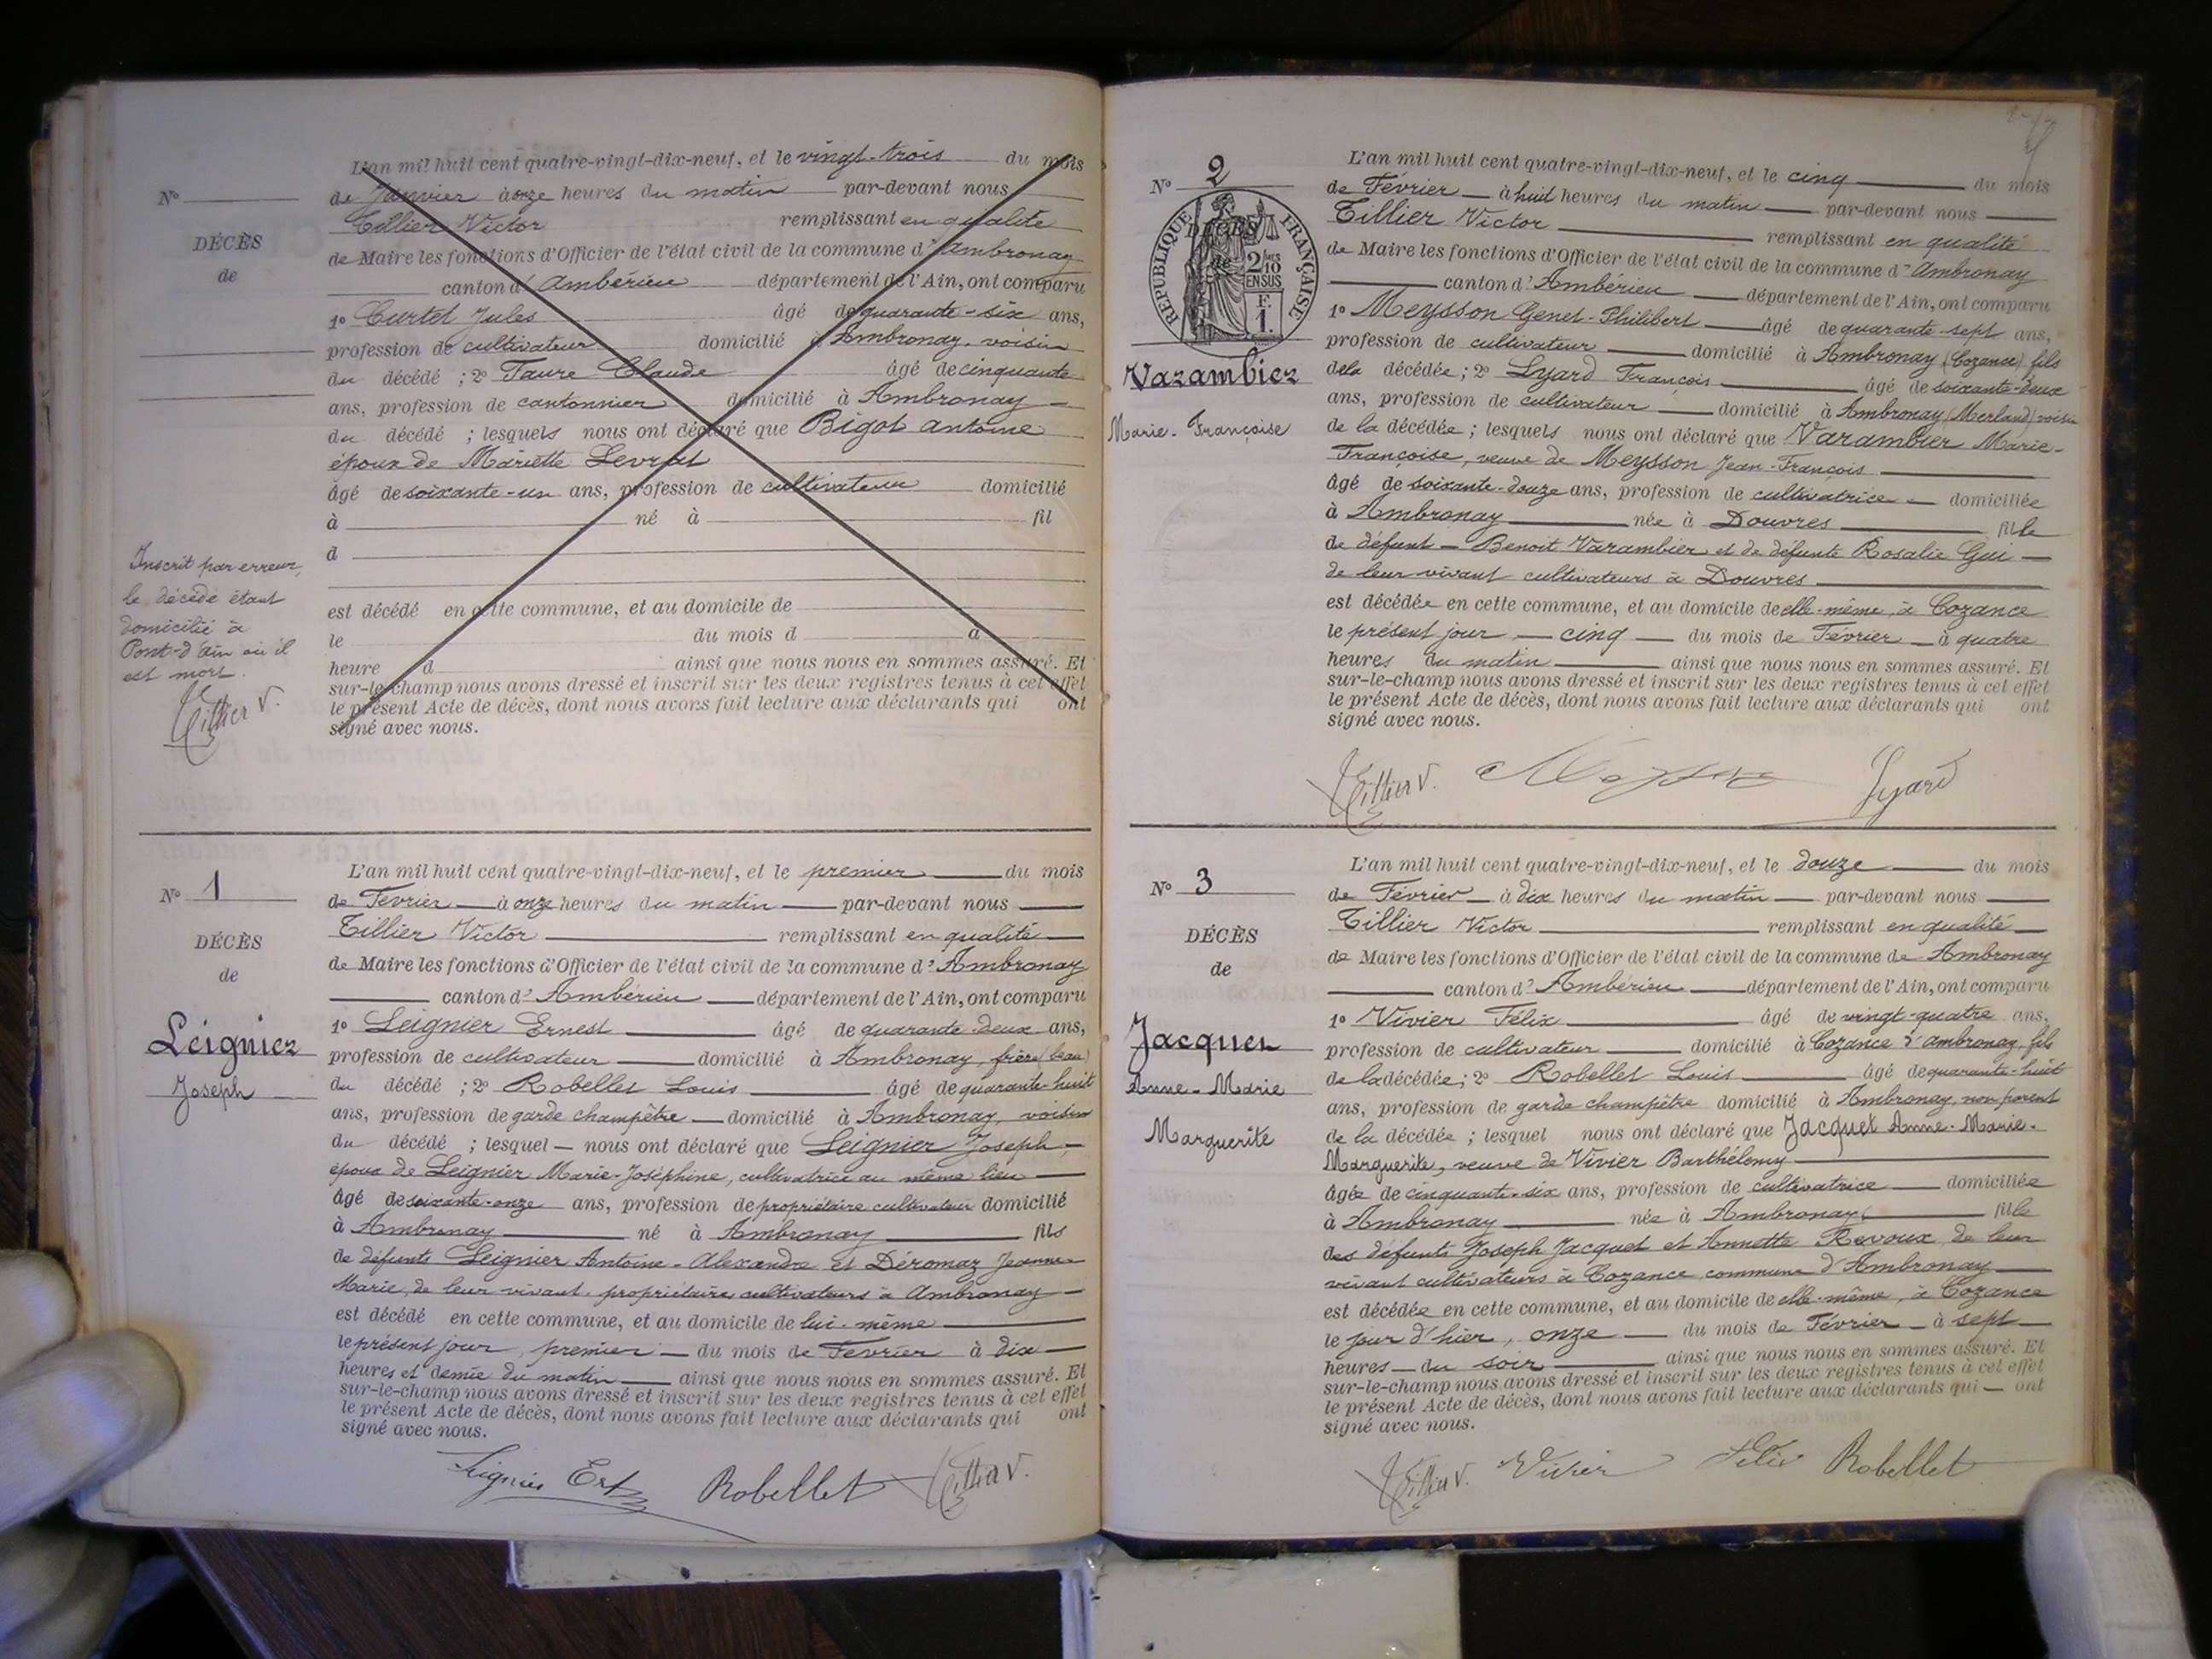 L'an mil huit cent quatre-vingt-dix-neuf, et le vingt-trois du mois
de Janvier à onze heures du matin par-devant nous
Tillier Victor remplissant en qualité
de Maire les fonctions d'Officier de l'état civil de la commune d'Ambronay
canton d'Ambérieu département de l'Ain, ont comparu
1° Curtet Jules âgé de quarante-six ans,
profession de cultivateur domicilié à Ambronay, voisin
du décédé ; 2° Faure Claude âgé de cinquante
ans, profession de cantonnier domicilié à Ambronay
du décédé ; lesquels nous ont déclaré que Bigot antoine
époux de Mariette Levrat
âgé de soixante-un ans, profession de cultivateur domicilié
à né à fil
d
est décédé en cette commune, et au domicile de
le du mois d à
heure d ainsi que nous nous en sommes assuré. Et
sur-le-champ nous avons dressé et inscrit sur les deux registres tenus à cet effet
le présent Acte de décès, dont nous avons fait lecture aux déclarants qui ont
signé avec nous.
N°
DÉCÈS
de
Inscrit par erreur,
le décédé étant
domicilié à
Pont-d'ain où il
est mort.
Tillier V.
N° 1
DÉCÈS
de
Leignier
Joseph
L'an mil huit cent quatre-vingt-dix-neuf, et le premier du mois
de Février à onze heures du matin par-devant nous
Tillier Victor remplissant en qualité
de Maire les fonctions d'Officier de l'état civil de la commune d'Ambronay
canton d'Ambérieu département de l'Ain, ont comparu
1° Leignier Ernest âgé de quarante-deux ans,
profession de cultivateur domicilié à Ambronay, frère (beau)
du décédé ; 2° Robellet Louis âgé de quarante-huit
ans, profession de garde champêtre domicilié à Ambronay, voisin
du décédé ; lesquel nous ont déclaré que Leignier Joseph
époux de Leignier Marie-Joséphine, cultivatrice au même lieu
âgé de soixante-onze ans, profession de propriétaire cultivateur domicilié
à Ambronay né à Ambronay fils
de défunts Leignier Antoine-Alexandre et Déromaz Jeanne-
Marie, de leur vivant propriétaires cultivateurs à Ambronay
est décédé en cette commune, et au domicile de lui-même
le présent jour, premier du mois de Février à dix
heures et demie du matin ainsi que nous nous en sommes assuré. Et
sur-le-champ nous avons dressé et inscrit sur les deux registres tenus à cet effet
le présent Acte de décès, dont nous avons fait lecture aux déclarants qui ont
signé avec nous.
Leignier Est Robellet Tillier V.
N° 2
REPUBLIQUE FRANÇAISE
DÉCÈS
de
2/10 EN SUS
F. 1.
Varambier
Marie-Françoise
L'an mil huit cent quatre-vingt-dix-neuf, et le cinq du mois
de Février à huit heures du matin par-devant nous
Tillier Victor remplissant en qualité
de Maire les fonctions d'Officier de l'état civil de la commune d'Ambronay
canton d'Ambérieu département de l'Ain, ont comparu
1° Meysson Genet-Philibert âgé de quarante-sept ans,
profession de cultivateur domicilié à Ambronay (Cozance) fils
de la décédée ; 2° Lyard François âgé de soixante-deux
ans, profession de cultivateur domicilié à Ambronay (Merland) voisin
de la décédée ; lesquels nous ont déclaré que Varambier Marie-
Françoise, veuve de Meysson Jean-François
âgé de soixante-douze ans, profession de cultivatrice domiciliée
à Ambronay née à Douvres fille
de défunt Benoit Varambier et de défunte Rosalie Gui
de leur vivant cultivateurs à Douvres
est décédée en cette commune, et au domicile de elle-même, à Cozance
le présent jour cinq du mois de Février à quatre
heures du matin ainsi que nous nous en sommes assuré. Et
sur-le-champ nous avons dressé et inscrit sur les deux registres tenus à cet effet
le présent Acte de décès, dont nous avons fait lecture aux déclarants qui ont
signé avec nous.
Tillier V. Meysson Lyard
N° 3
DÉCÈS
de
Jacquet
Anne-Marie
Marguerite
L'an mil huit cent quatre-vingt-dix-neuf, et le douze du mois
de Février à dix heures du matin par-devant nous
Tillier Victor remplissant en qualité
de Maire les fonctions d'Officier de l'état civil de la commune de Ambronay
canton d'Ambérieu département de l'Ain, ont comparu
1° Vivier Félix âgé de vingt-quatre ans,
profession de cultivateur domicilié à Cozance d'ambronay, fils
de la décédée ; 2° Robellet Louis âgé de quarante-huit
ans, profession de garde champêtre domicilié à Ambronay, non parent
de la décédée ; lesquel nous ont déclaré que Jacquet Anne-Marie-
Marguerite, veuve de Vivier Barthélemy
âgée de cinquante-six ans, profession de cultivatrice domiciliée
à Ambronay née à Ambronay fille
des défunts Joseph Jacquet et Annette Revoux de leur
vivant cultivateurs à Cozance commune d'Ambronay
est décédée en cette commune, et au domicile de elle-même, à Cozance
le jour d'hier, onze du mois de Février à sept
heures du soir ainsi que nous nous en sommes assuré. Et
sur-le-champ nous avons dressé et inscrit sur les deux registres tenus à cet effet
le présent Acte de décès, dont nous avons fait lecture aux déclarants qui ont
signé avec nous.
Tillier V. Vivier Félix Robellet